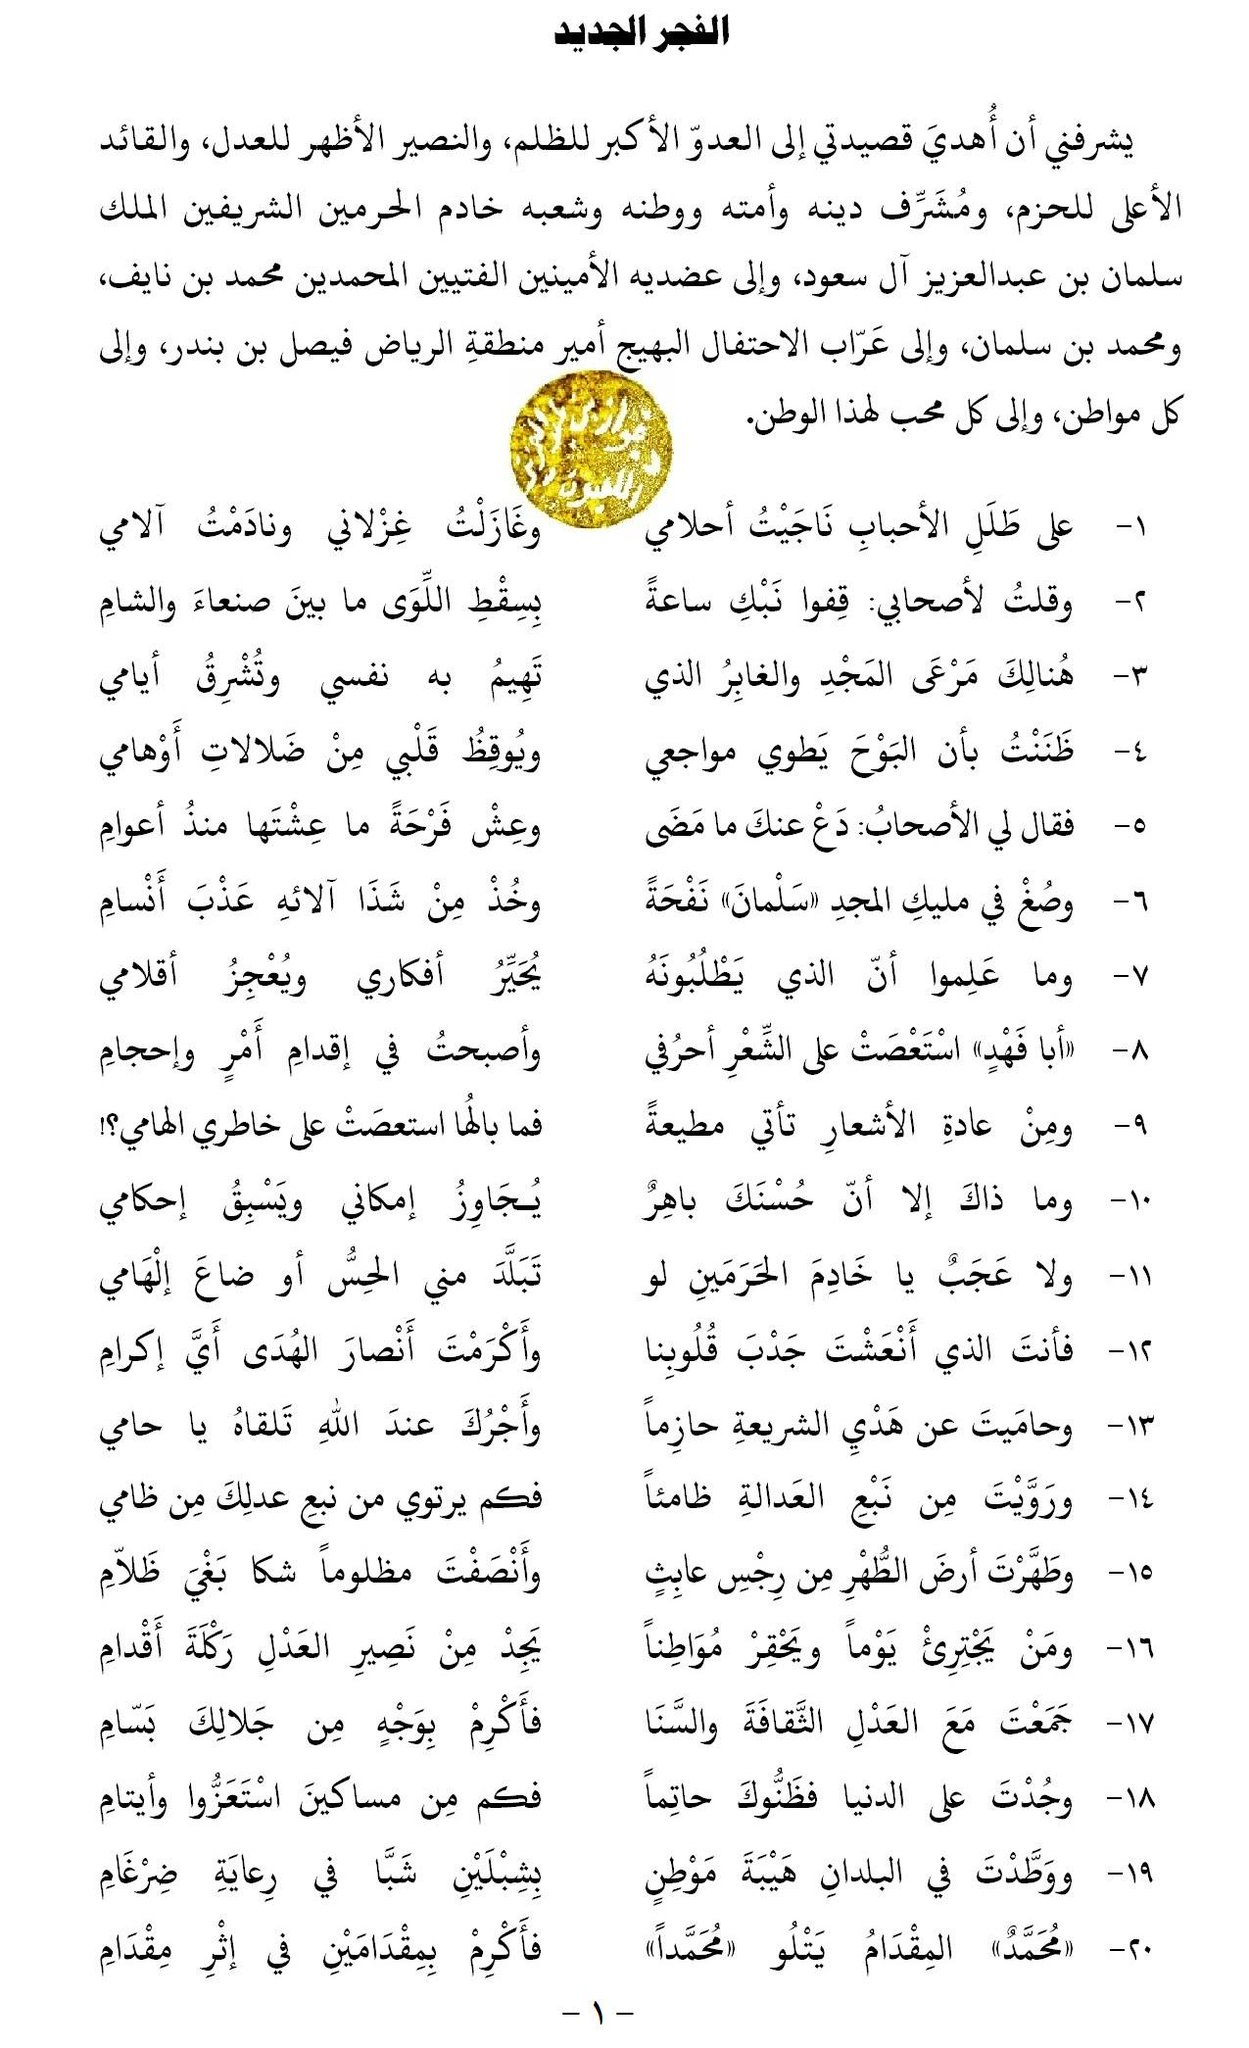 الفجر الجديد
يشرفني أن أُهديَ قصيدتي إلى العدوّ الأكبر للظلم، والنصير الأظهر للعدل، والقائد
الأعلى للحزم، ومُشَرِّف دينه وأمته ووطنه وشعبه خادم الحرمين الشريفين الملك
سلمان بن عبدالعزيز آل سعود، وإلى عضديه الأمينين الفتيين المحمدين محمد بن نايف،
ومحمد بن سلمان، وإلى عَرّاب الاحتفال البهيج أمير منطقةِ الرياض فيصل بن بندر، وإلى
كل مواطن، وإلى كل محب لهذا الوطن.
١- على طَلَلِ الأحبابِ نَاجَيْتُ أحلامي وغَازَلْتُ غِزْلاني ونادَمْتُ آلامي
٢- وقلتُ لأصحابي: قِفوا نَبْكِ ساعةً بِسِقْطِ اللِّوَى ما بينَ صنعاءَ والشامِ
٣- هُنالِكَ مَرْعَى المَجْدِ والغابِرُ الذي تَهِيمُ به نفسي وتُشْرِقُ أيامي
٤- ظَنَنْتُ بأن البَوْحَ يَطوي مواجعي ويُوقِظُ قَلْبي مِنْ ضَلالاتِ أَوْهامي
٥- فقال لي الأصحابُ: دَعْ عنكَ ما مَضَى وعِشْ فَرْحَةً ما عِشْتَها منذُ أعوامِ
٦- وصُغْ في مليكِ المجدِ «سَلْمانَ» نَفْحَةً وخُذْ مِنْ شَذَا آلائهِ عَذْبَ أَنْسامِ
٧- وما عَلِموا أنّ الذي يَطْلُبُونَهُ يُحَيِّرُ أفكاري ويُعْجِزُ أقلامي
٨- «أبا فَهْدٍ» اسْتَعْصَتْ على الشِّعْرِ أحرُفي وأصبحتُ في إقدامِ أَمْرٍ وإحجامِ
٩- ومِنْ عادةِ الأشعارِ تأتي مطيعةً فما بالُها استعصَتْ على خاطري الهامي؟!
١٠- وما ذاكَ إلا أنّ حُسْنَكَ باهِرٌ يُـجَاوِزُ إمكاني ويَسْبِقُ إحكامي
١١- ولا عَجَبٌ يا خَادِمَ الحَرَمَينِ لو تَبَلَّدَ مني الحِسُّ أو ضاعَ إلْهَامي
١٢- فأنتَ الذي أَنْعَشْتَ جَدْبَ قُلُوبِنا وأَكْرَمْتَ أَنْصارَ الهُدَى أَيَّ إكرامِ
١٣- وحامَيتَ عن هَدْيِ الشريعةِ حازِماً وأَجْرُكَ عندَ اللهِ تَلقاهُ يا حامي
١٤- ورَوَّيْتَ مِن نَبْعِ العَدالةِ ظامئاً فكم يرتوي من نبعِ عدلِكَ مِن ظامي
١٥- وطَهَّرْتَ أرضَ الطُّهْرِ مِن رِجْسِ عابِثٍ وأَنْصَفْتَ مظلوماً شكا بَغْيَ ظَلاّمِ
١٦- ومَنْ يَجْتِرِئْ يَوْماً ويَحْقِرْ مُوَاطِناً يَجِدْ مِنْ نَصِيرِ العَدْلِ رَكْلَةَ أَقْدامِ
١٧- جَمَعْتَ مَعَ العَدْلِ الثَّقافَةَ والسَّنَا فأَكْرِمْ بِوَجْهٍ مِن جَلالِكَ بَسّامِ
١٨- وجُدْتَ على الدنيا فظَنُّوكَ حاتِماً فكم مِن مساكينَ اسْتَعَزُّوا وأيتامِ
١٩- ووَطَّدْتَ في البلدانِ هَيْبَةَ مَوْطِنٍ بِشِبْلَيْنِ شَبَّا في رِعايَةِ ضِرْغَامِ
٢٠- «مُحَمَّدٌ» المِقْدَامُ يَتْلُو «مُحَمَّداً» فأَكْرِمْ بِمِقْدَامَيْنِ في إثْرِ مِقْدَامِ
- ١ -